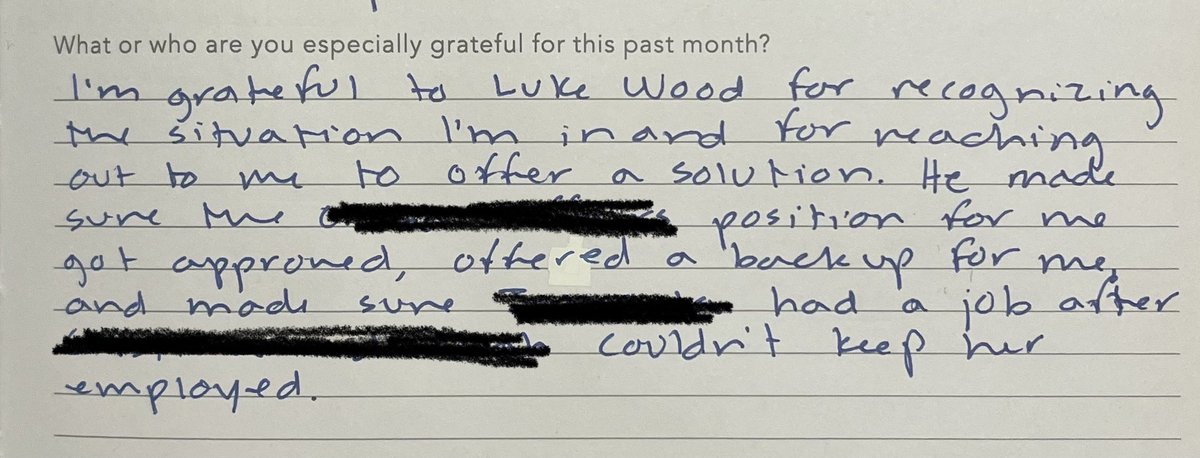 What or who are you especially grateful for this past month?
I'm grateful to Luke Wood for recognizing
the situation I'm in and for reaching
out to me to offer a solution. He made
sure the position for me
got approved, offered a backup for me,
and made sure had a job after
couldn't keep her
employed.